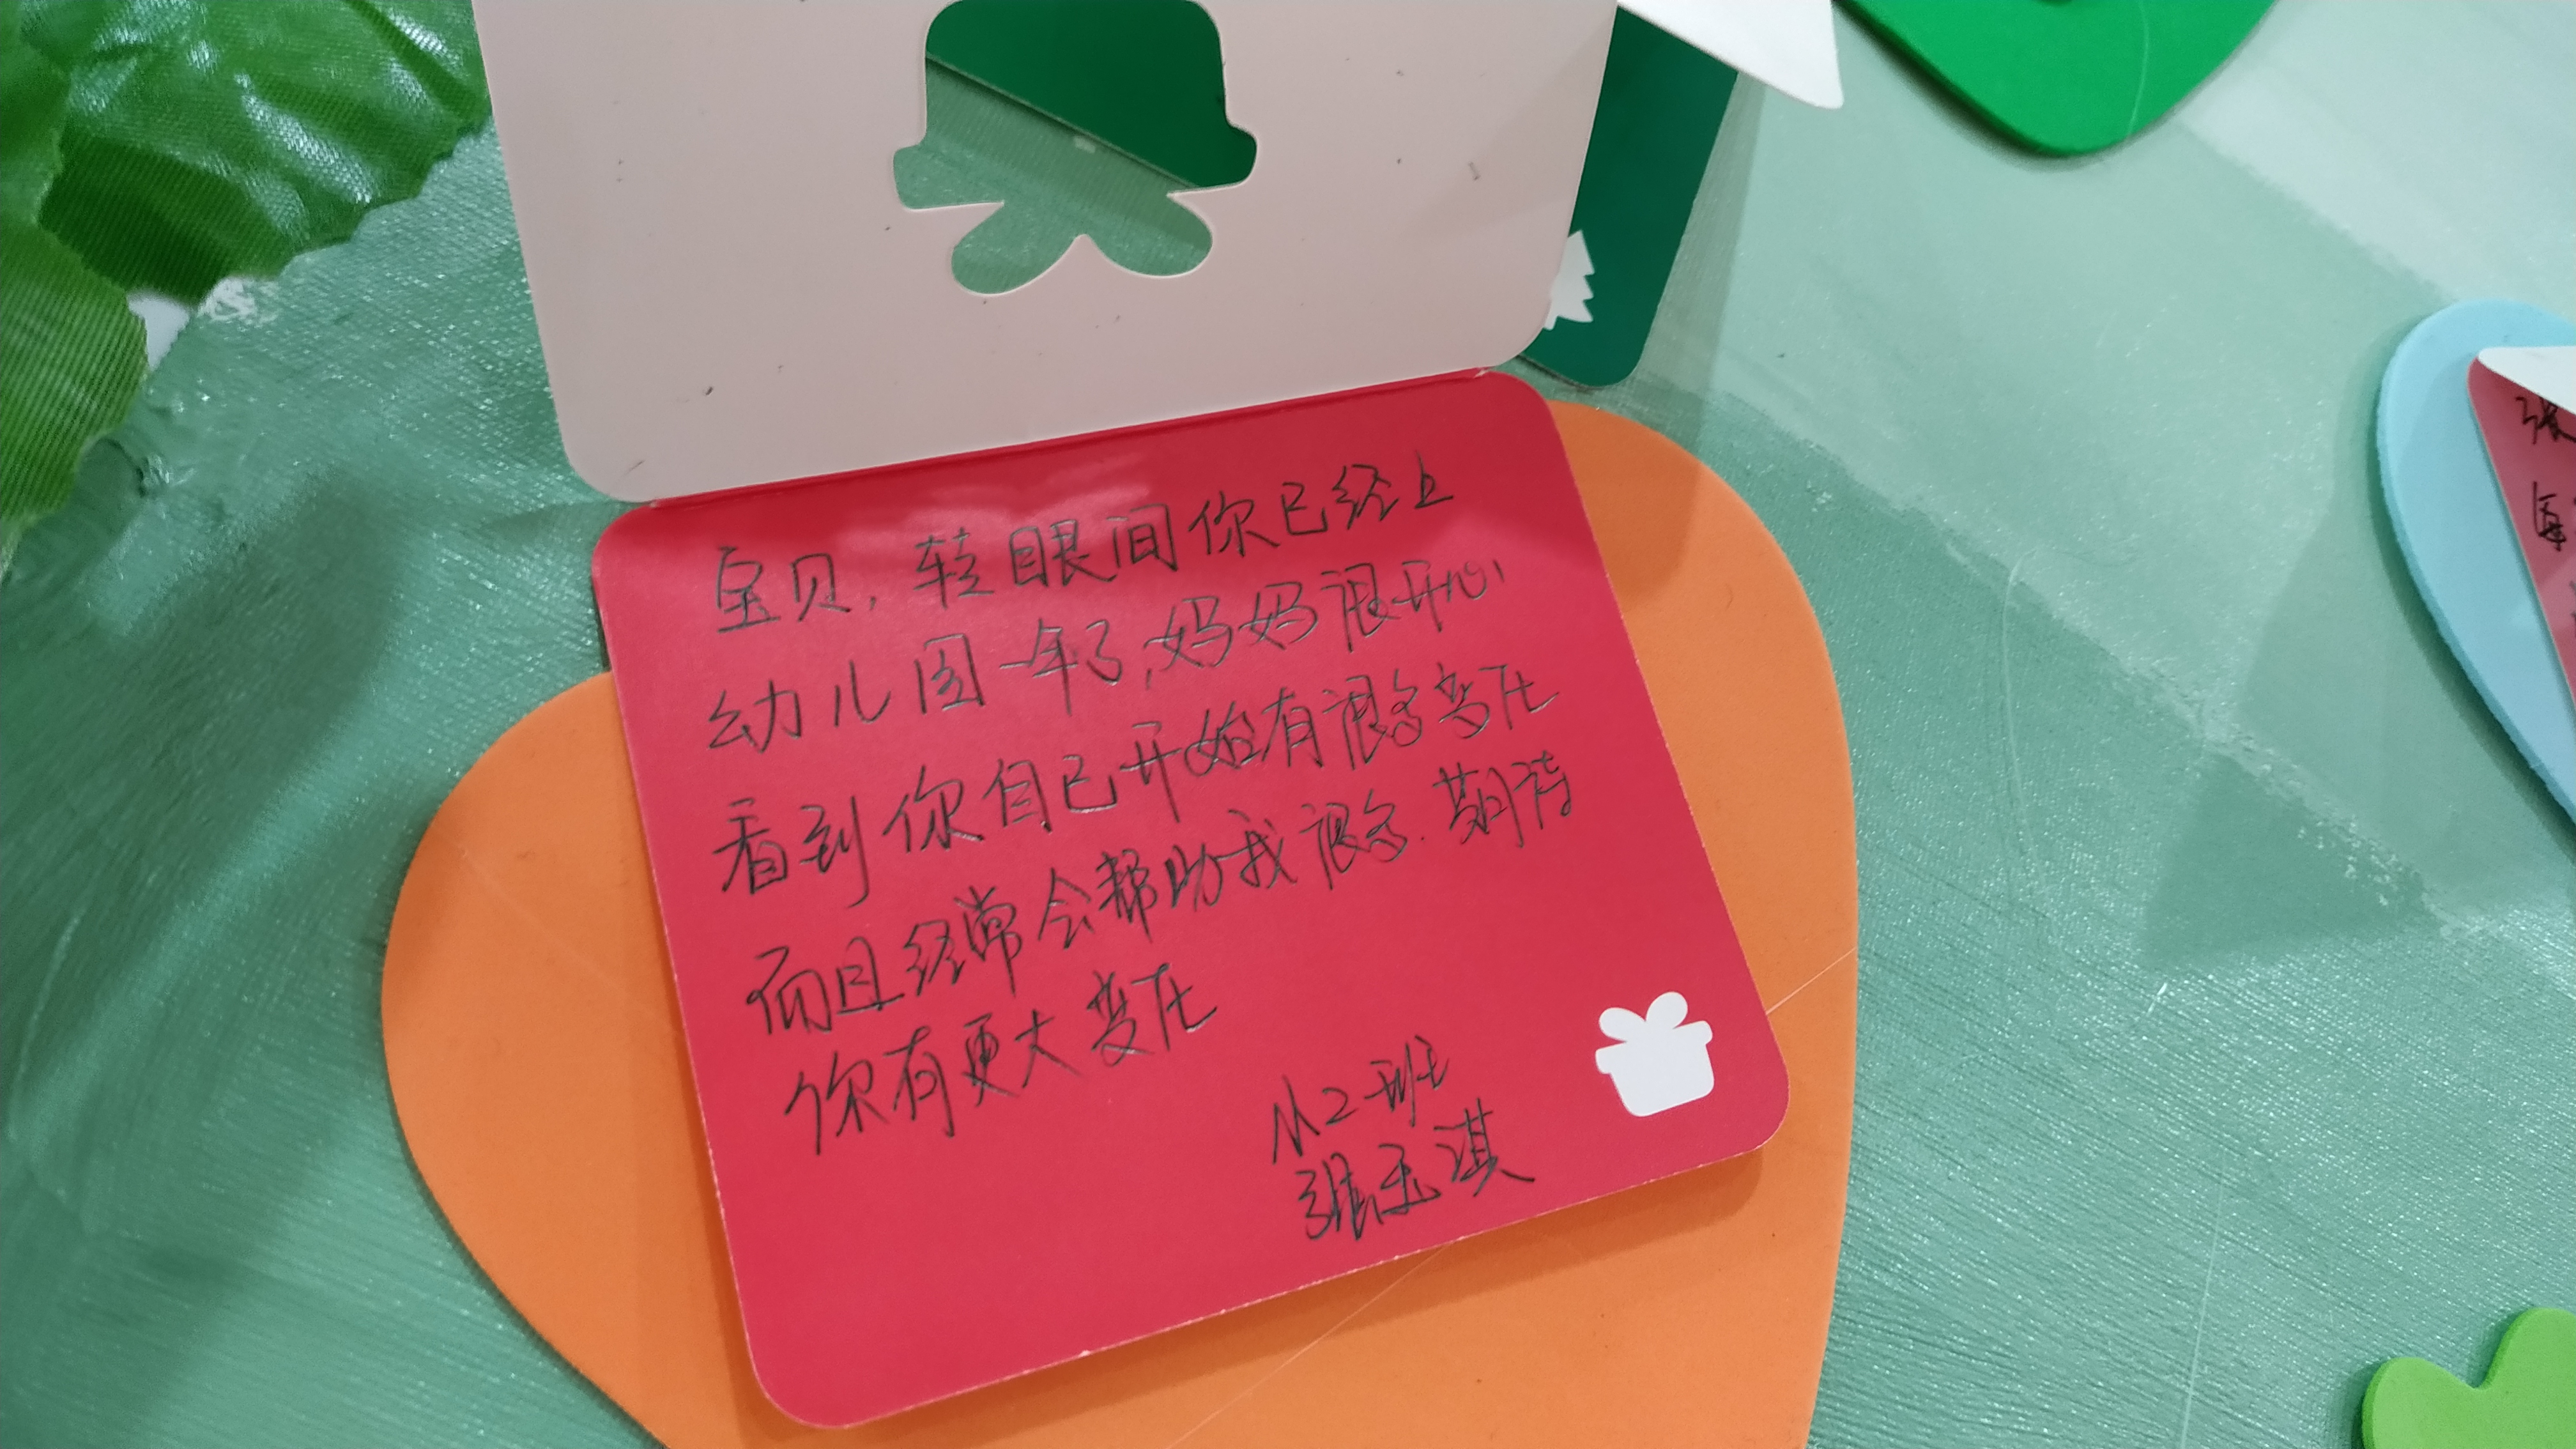 宝贝，转眼间你已经上
幼儿园一年了，妈妈很开心
看到你自己开始有很多变化
而且经常会帮助我很多．期待
你有更大变化
小2班
张玉淇
张